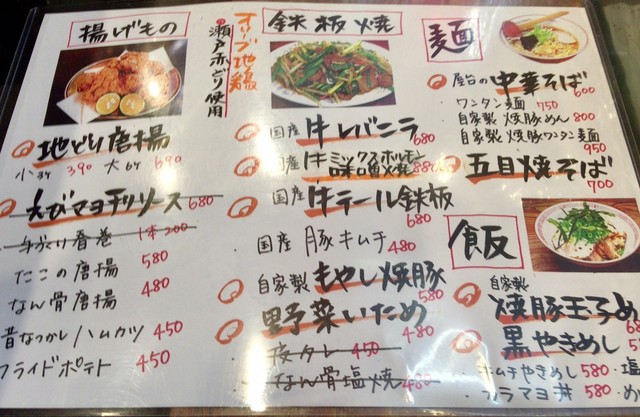 揚げもの
地どり唐揚
小3ケ 390 大6ケ 690
えびマヨチリソース 680
手づくり春巻 1本200
たこの唐揚 580
なん骨唐揚 480
昔なつかしハムカツ 450
フライドポテト 450
オリーブ地鶏
瀬戸赤どり使用
鉄板焼
国産 牛レバニラ 680
国産 牛ミックスホルモン味噌焼 880
国産 牛テール鉄板 680
国産 豚キムチ 480
自家製 もやし焼豚 580
野菜いため 480
皮タレ 450
なん骨塩焼 480
麺
屋台の中華そば 600
ワンタン麺 750
自家製 焼豚めん 800
自家製 焼豚ワンタン麺 950
五目焼そば 700
飯
自家製
焼豚玉子め
黒やきめし
キムチやきめし 580・塩
カラマヨ丼 580・